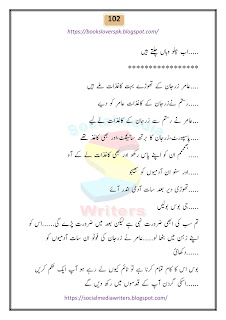 102
https://bookslioverspk.blogspot.com/
.....اب چلو وہاں چلتے ہیں
****************
....عامر زرجان کے تھوڑے بہت کاغذات ملے ہیں
....رستم نے زرجان کے کاغذات عامر کو دیے
....عامر نے رستم سے زرجان کے کاغذات لے لیے
....پاسپورٹ زرجان کا برتھ سرٹیفکیٹ اور بھی کاغذ تھے
ان کو اپنے پاس رکھو اور بھی کاغذات لے کے آو
....اور سنو ان آدمیوں کو بھیجو
....تھوڑی دیر بعد سات آدمی اندر آئے
....جی بوس بولیں
تم سب کی ابھی ضرورت نہیں ہے لیکن بعد میں ضرورت پڑے گی.....اس کو
اپنے ذہن میں بٹھا لو.....عامر نے زرجان کی فوٹو ان سات آدمیوں کو
.....دکھائی
بوس اس کا کام تمام کرنا ہے تو ٹائم کیوں لے رہے ہو آپ ایک حکم کریں
....اسکی گردن آپ کے قدموں میں رکھ دیں گے
Social Media
Writers
https://socialmediawriters.blogspot.com/